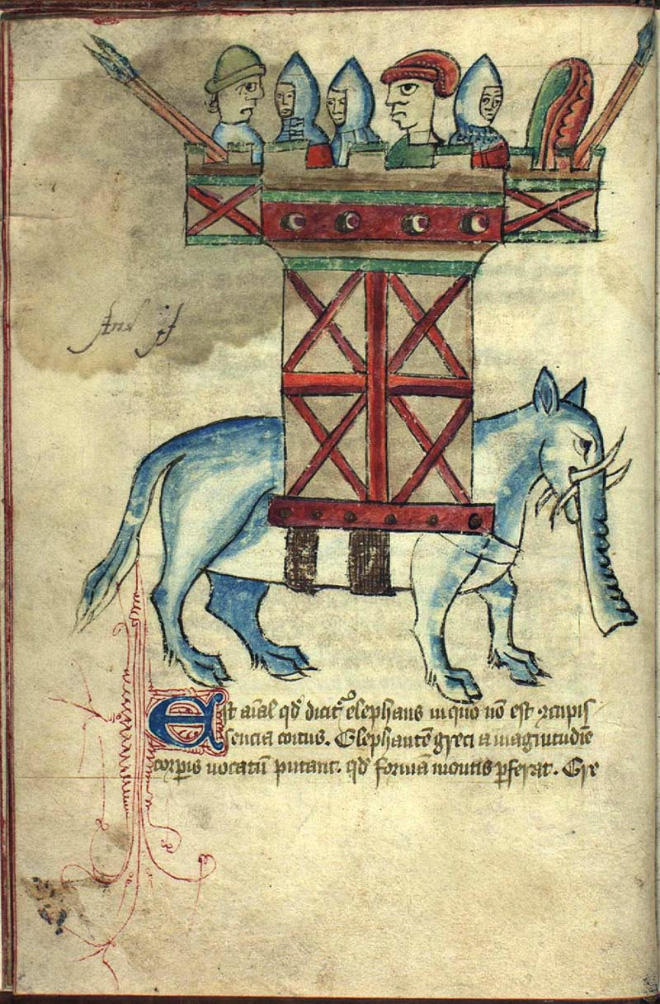 Est aĩal qđ dicit᷑ elephans in quo nõ est ꝯcupis
sencia coitus. Elephantẽ greci a magnitudie
corꝑis uocatũ putant. qđ formã montis p̃ferat. Gre